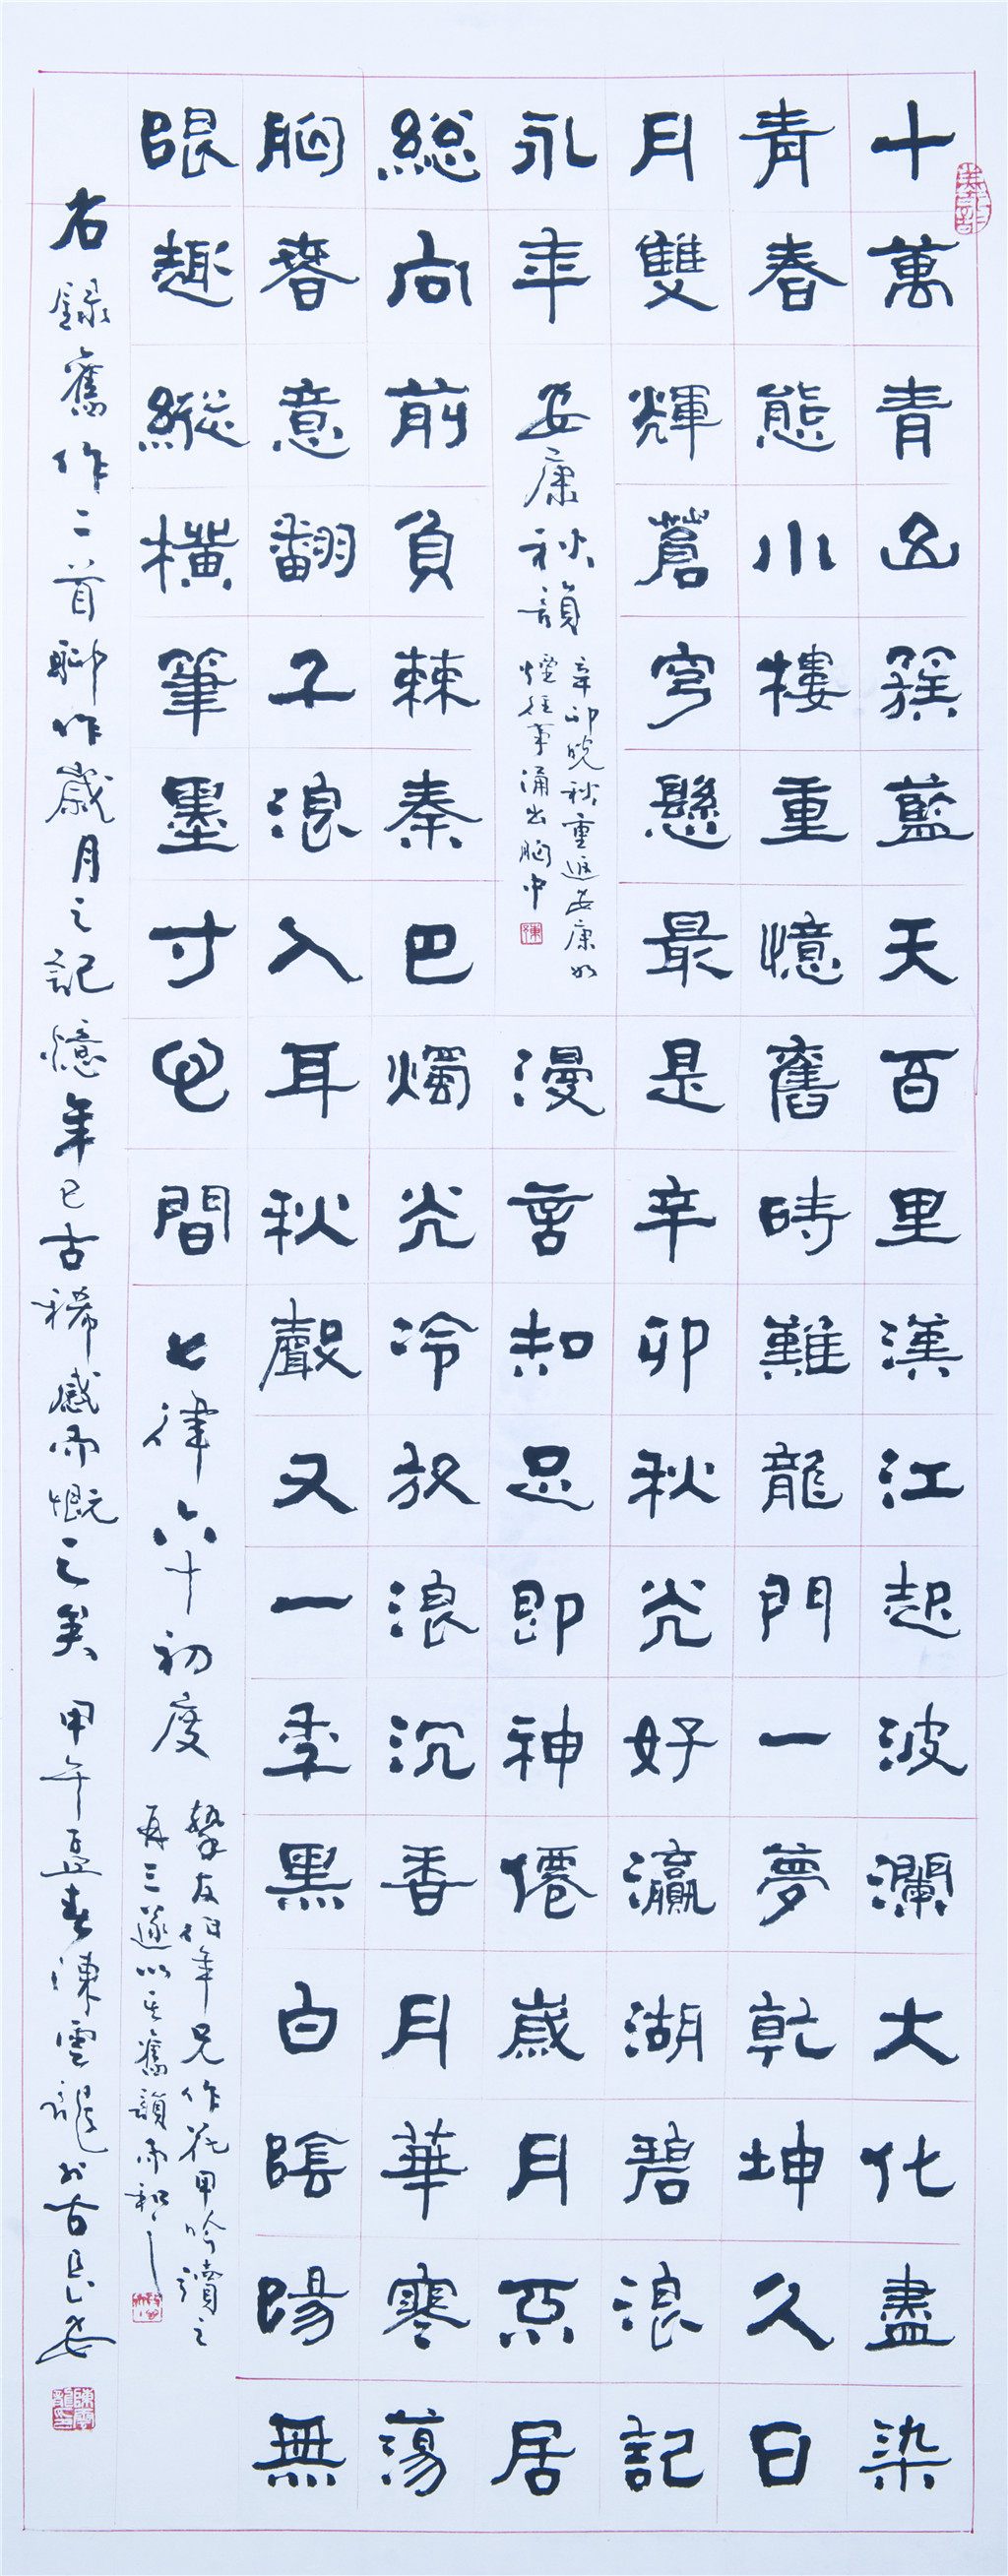 十萬青山簇藍天百里漢江起波瀾大化盡染
青春態小樓重憶舊時難龍門一夢乾坤久日
月雙輝蒼穹懸最是辛卯秋光好瀛湖碧浪記
永年 安康秋韻
辛卯晚秋重返安康如
煙往事涌出胸中
漫言知足即神僊歲月不居
総向前負棘秦巴燭光冷放浪沉香月華寒蕩
胸春意翻千浪入耳秋聲又一季黑白陰陽無
眼趣縱橫筆墨寸心間 七律六十初度
摯友伯年兄作花甲吟讀之
再三遂以其舊韻而和之
右錄舊作二首聊作歲月之記憶年已古稀感而慨之矣 甲午孟春陳雲龍於古長安
陳
陳雲龍印